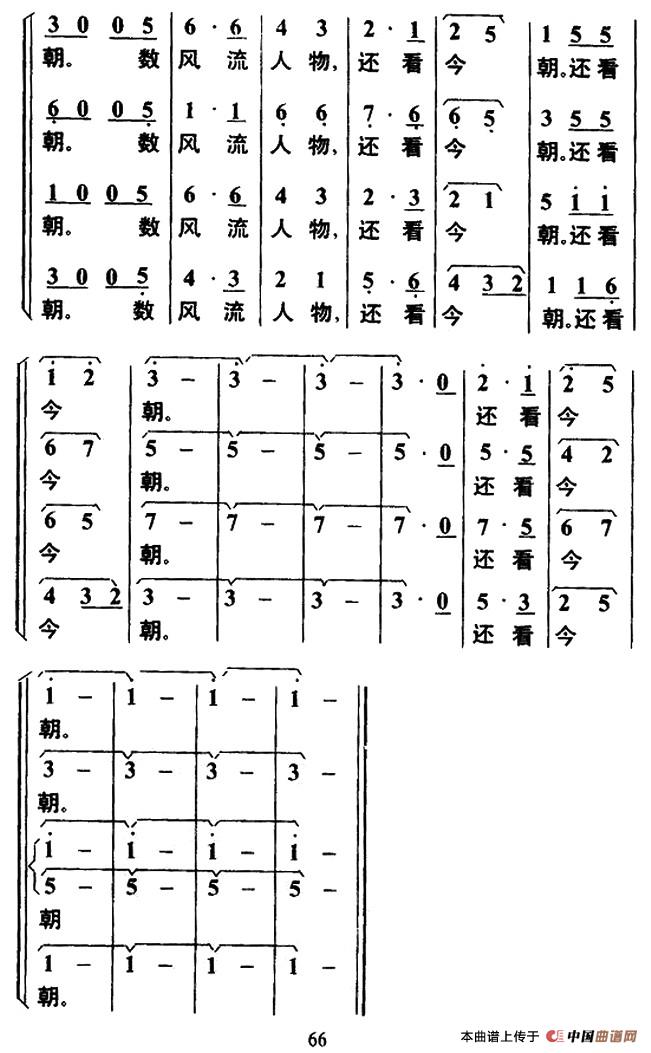 3 0 0 5 | 6 · 6 | 4 3 | 2 · 1 | 2 5 | 1 5 5
朝。 数 风 流 人 物, 还 看 今 朝。还 看
6 0 0 5 | 1 · 1 | 6 6 | 7 · 6 | 6 5 | 3 5 5
朝。 数 风 流 人 物, 还 看 今 朝。还 看
1 0 0 5 | 6 · 6 | 4 3 | 2 · 3 | 2 1 | 5 i i
朝。 数 风 流 人 物, 还 看 今 朝。还 看
3 0 0 5 | 4 · 3 | 2 1 | 5 · 6 | 4 3 2 | 1 1 6
朝。 数 风 流 人 物, 还 看 今 朝。还 看
1 2 | 3 – | 3 – | 3 – | 3 · 0 | 2 · 1 | 2 5
今 朝。 还 看 今
6 7 | 5 – | 5 – | 5 – | 5 · 0 | 5 · 5 | 4 2
今 朝。 还 看 今
6 5 | 7 – | 7 – | 7 – | 7 · 0 | 7 · 5 | 6 7
今 朝。 还 看 今
4 3 2 | 3 – | 3 – | 3 – | 3 · 0 | 5 · 3 | 2 5
今 朝。 还 看 今
1 – | 1 – | 1 – | 1 –
朝。
3 – | 3 – | 3 – | 3 –
朝。
1 – | 1 – | 1 – | 1 –
5 – | 5 – | 5 – | 5 –
朝
1 – | 1 – | 1 – | 1 –
朝。
66
本曲谱上传于 中国曲谱网